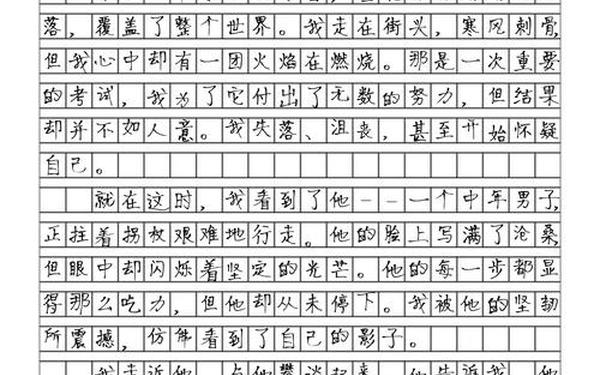 落，覆盖了整个世界。我走在街头，寒风刺骨，
但我心中却有一团火焰在燃烧。那是一次重要
的考试，我为了它付出了无数的努力，但结果
却并不如人意。我失落、沮丧，甚至开始怀疑
自己。
就在这时，我看到了他——一个中年男子，
正拄着拐杖艰难地行走。他的脸上写满了沧桑，
但眼中却闪烁着坚定的光芒。他的每一步都显
得那么吃力，但他却从未停下。我被他的坚韧
所震撼，仿佛看到了自己的影子。
我走近他，与他攀谈起来。他告诉我，他